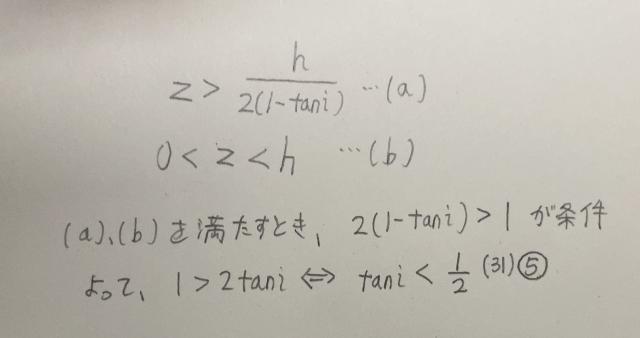 z > h/2(1-tani) …(a)
0 < z < h …(b)
(a)、(b)を満たすとき、2(1-tani) > 1 が条件
よって、1 > 2tani ⇔ tani < 1/2 (31)⑤